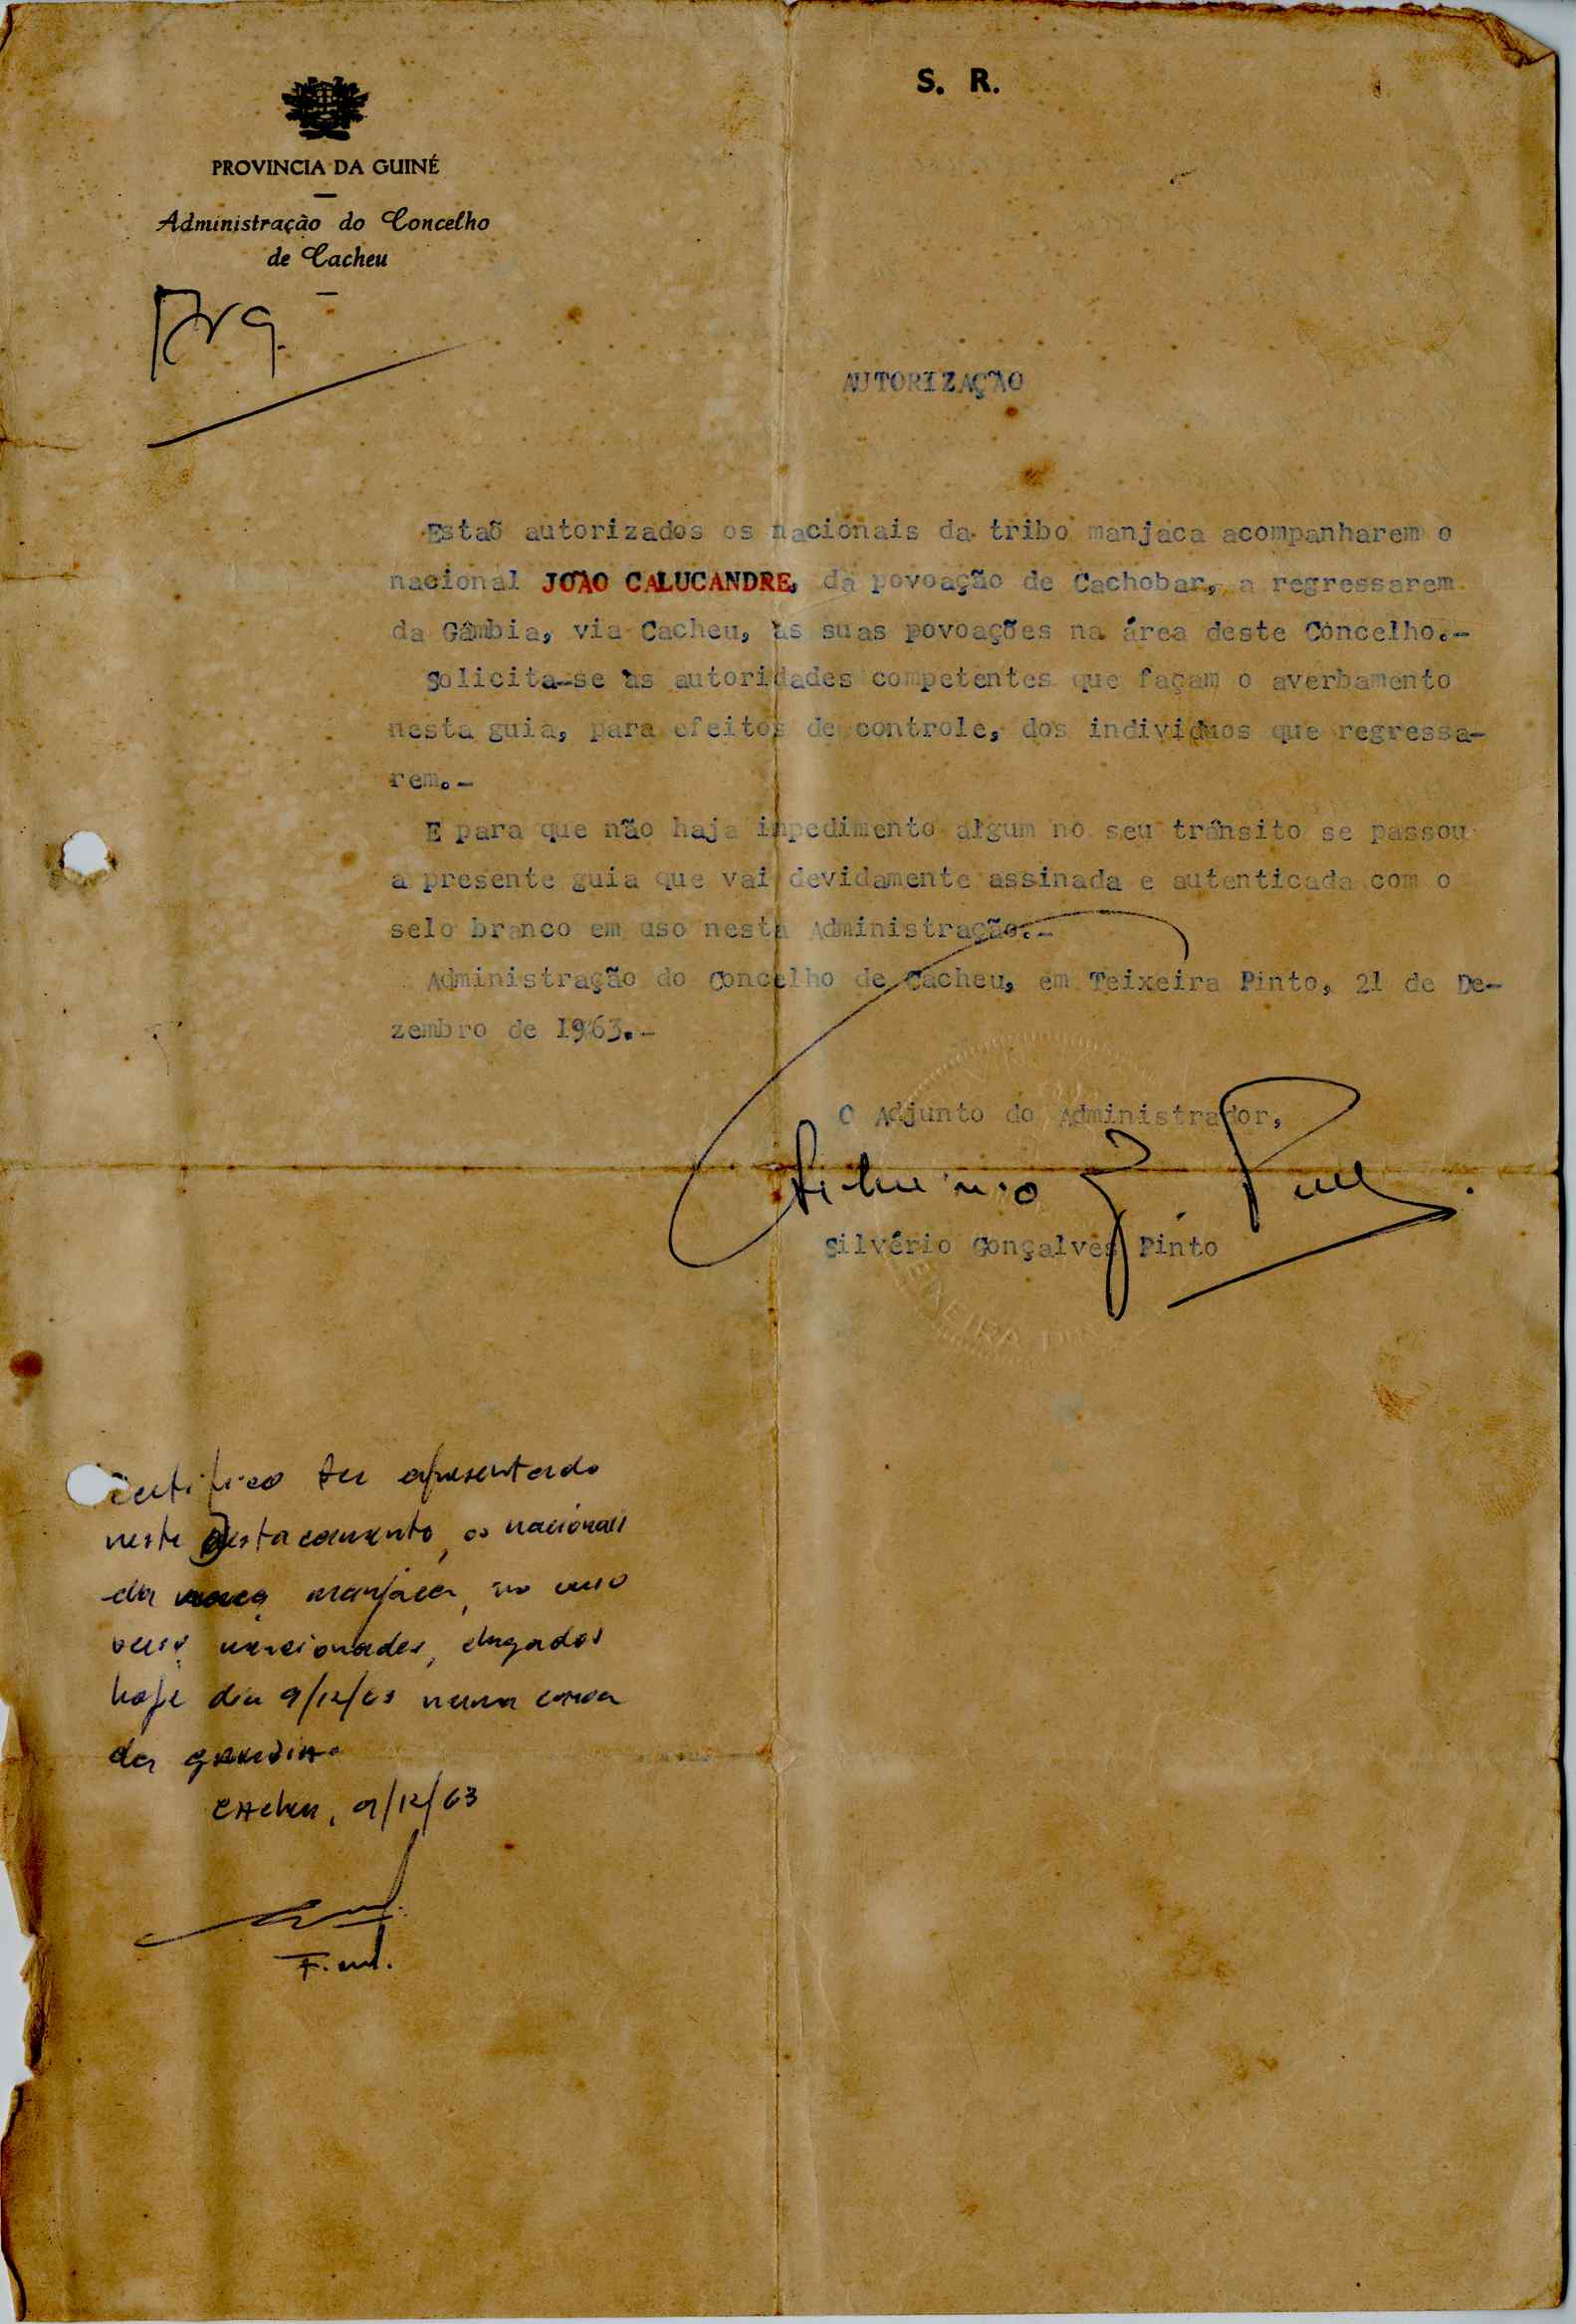 S. R.
PROVINCIA DA GUINÉ
Administração do Concelho
de Cacheu
Arq.
AUTORIZAÇÃO
Estaõ autorizados os nacionais da tribo manjaca acompanharem o
nacional JOÃO CALUCANDRE, da povoação de Cachobar, a regressarem
da Gâmbia, via Cacheu, às suas povoações na área deste Concelho.-
Solicita-se às autoridades competentes que façam o averbamento
nesta guia, para efeitos de controle, dos individuos que regressa-
rem.-
E para que não haja impedimento algum no seu trânsito se passou
a presente guia que vai devidamente assinada e autenticada com o
selo branco em uso nesta Administração.-
Administração do Concelho de Cacheu, em Teixeira Pinto, 21 de De-
zembro de 1963.-
O Adjunto do Administrador,
Silvério Gonçalves Pinto
TEIXEIRA PINTO
Certifico ter apresentado
neste Destacamento, os nacionais
da manjaca, no
verso mencionados, chegados
hoje dia 9/12/63 numa canoa
da
Cacheu, 9/12/63